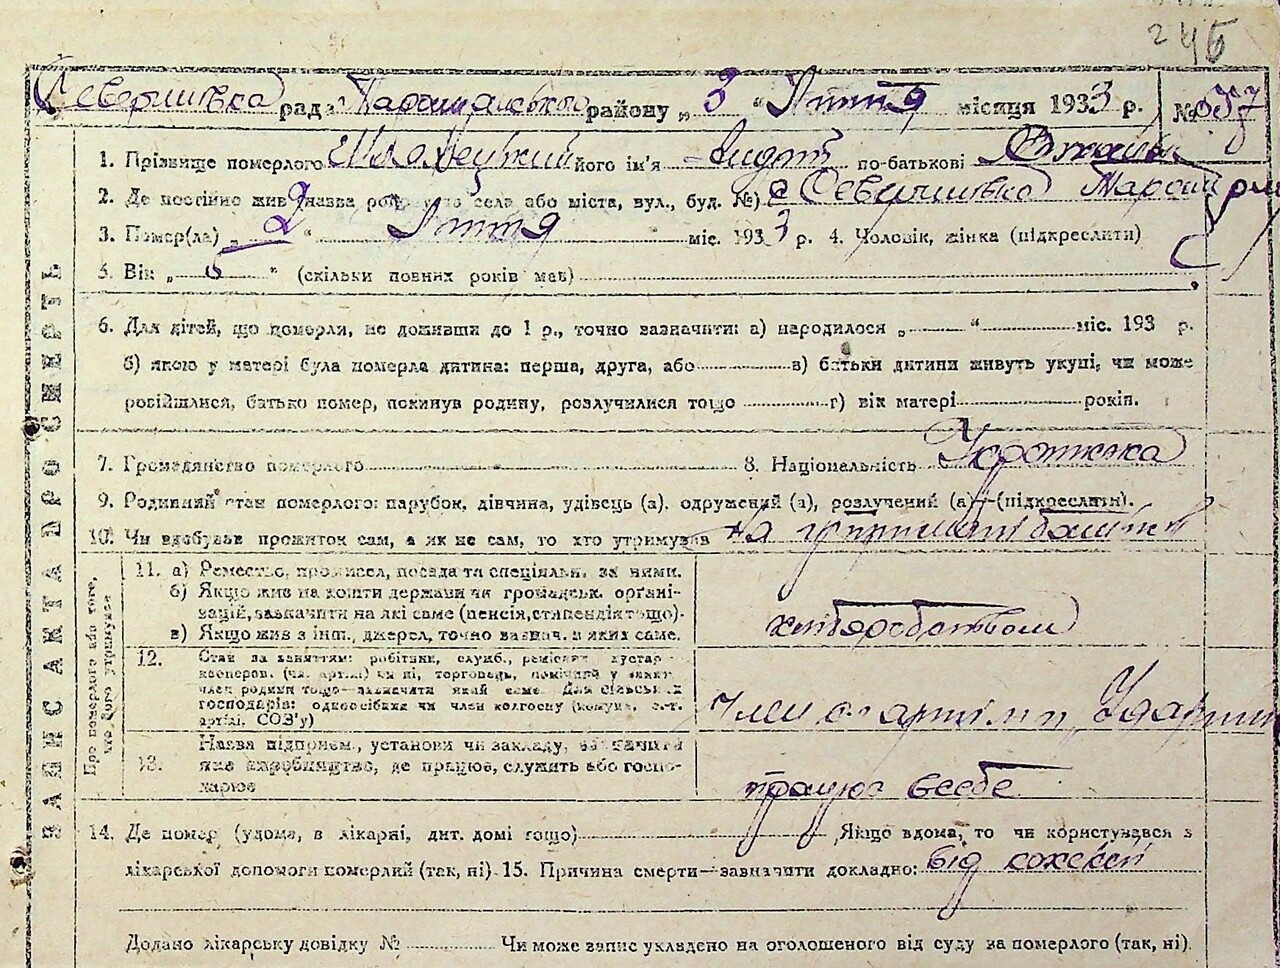 246
рада району „ 3 “ Липня місяця 1933 р. №
1. Прізвище померлого його ім'я по-батькові
2. Де постійно жив (назва села або міста, вул., буд. №) с
3. Помер(ла) „ 2 “ Липня міс. 1933 р. 4. Чоловік, жінка (підкреслити)
5. Вік „ “ (скільки повних років мав)
6. Для дітей, що померли, не доживши до 1 р., точно зазначити: а) народилося „ “ міс. 193 р.
б) якою у матері була померла дитина: перша, друга, або в) батьки дитини живуть укупі, чи може
розійшлися, батько помер, покинув родину, розлучилися тощо г) вік матері років.
7. Громадянство померлого 8. Національність Українка
9. Родинний стан померлого: парубок, дівчина, удівець (а), одружений (а), розлучений (а)—(підкреслити).
10. Чи здобував прожиток сам, а як не сам, то хто утримував на
ЗАПИС АКТА ПРО СМЕРТЬ
Про померлого або того, хто його утримував
11. а) Ремество, промисел, посада та спеціяльн. за ними.
б) Якщо жив на кошти держави чи громадськ. орґані-
зацій, зазначити на які саме (пенсія, стипендія тощо).
в) Якщо жив з інш. джерел, точно зазнач. з яких саме.
хліборобством
12. Стан за заняттям: робітник, служб., ремісник кустар
кооперов. (чл. артілі) чи ні, торговець,
член родини тощо—зазначити який саме. Для сільськ.
господарів: одноосібник чи член колгоспу (комуна, с.-г.
артілі, СОЗ'у)
член артілі
13. Назва підприєм., установи чи закладу, зазначити
яке виробництво, де працює, служить або госпо-
дарює
працює в себе
14. Де помер (удома, в лікарні, дит. домі тощо) Якщо вдома, то чи користувався з
лікарської допомоги померлий (так, ні) 15. Причина смерти—зазначити докладно: від
Додано лікарську довідку № Чи може запис укладено на оголошеного від суду за померлого (так, ні).